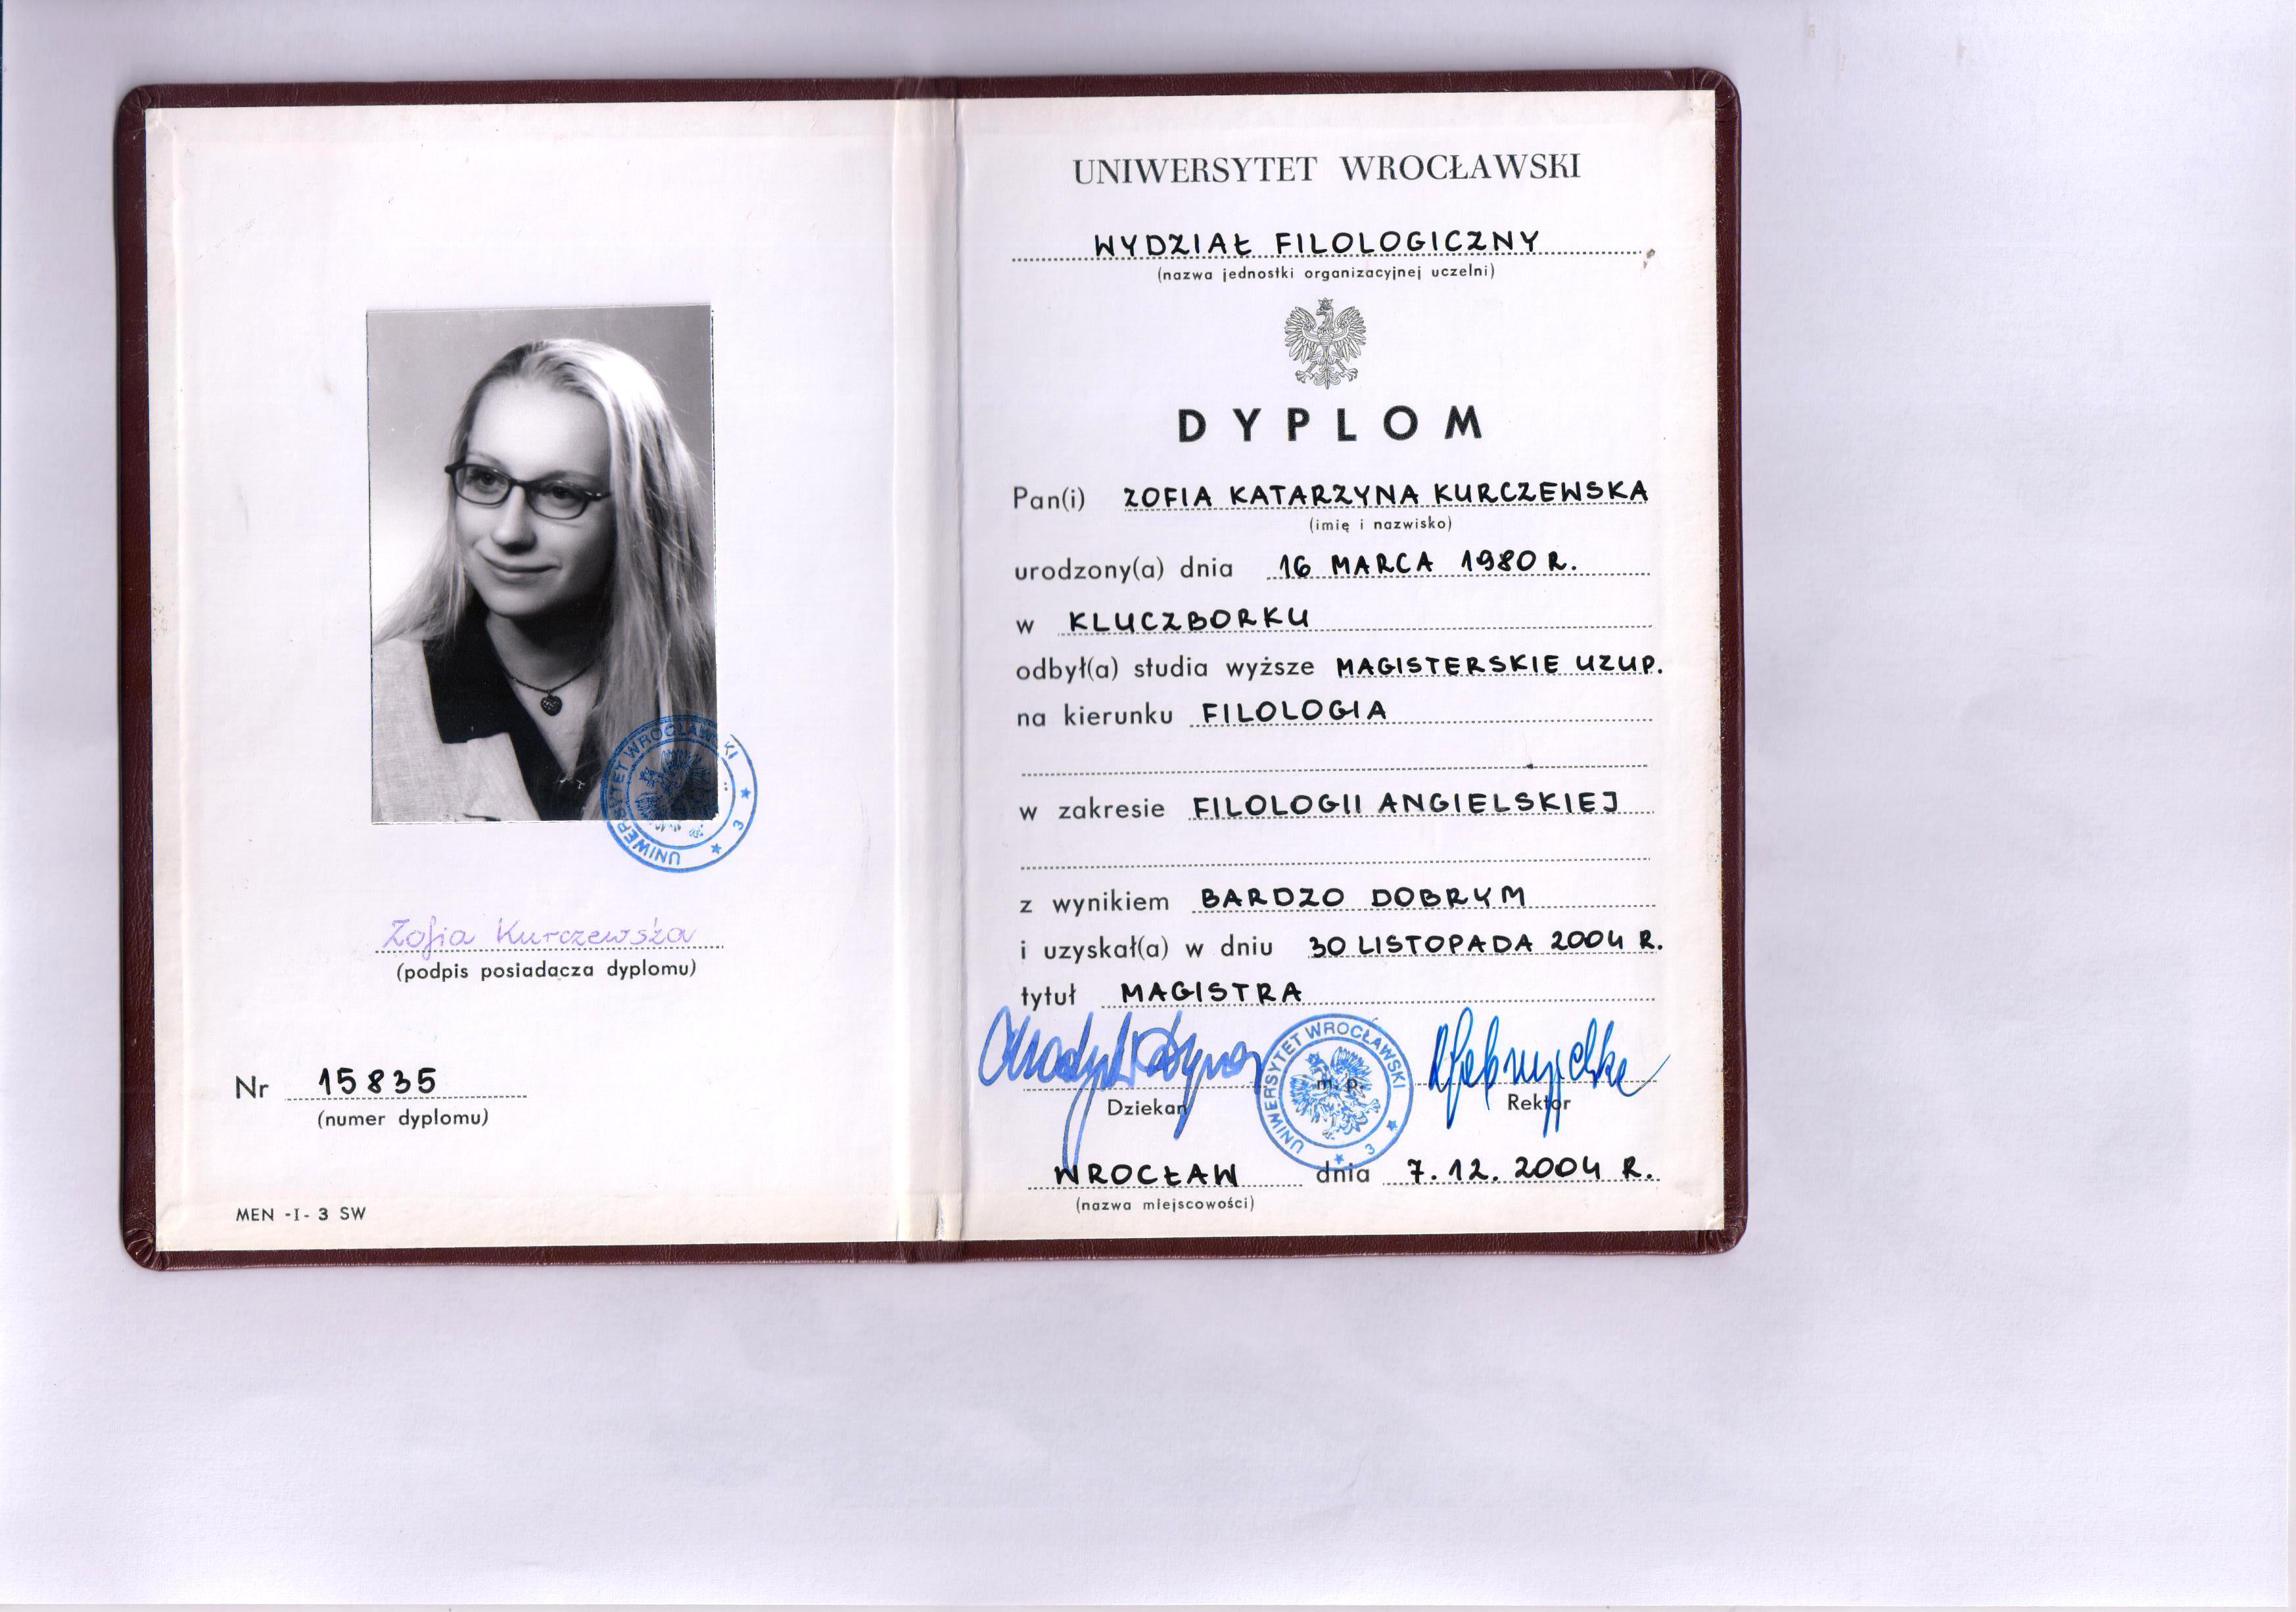 UNIWERSYTET WROCŁAWSKI
★ 3 ★
Zofia Kurczewska
(podpis posiadacza dyplomu)
Nr 15835
(numer dyplomu)
MEN -I- 3 SW
UNIWERSYTET WROCŁAWSKI
WYDZIAŁ FILOLOGICZNY
(nazwa jednostki organizacyjnej uczelni)
DYPLOM
Pan(i) ZOFIA KATARZYNA KURCZEWSKA
(imię i nazwisko)
urodzony(a) dnia 16 MARCA 1980 R.
w KLUCZBORKU
odbył(a) studia wyższe MAGISTERSKIE UZUP.
na kierunku FILOLOGIA
w zakresie FILOLOGII ANGIELSKIEJ
z wynikiem BARDZO DOBRYM
i uzyskał(a) w dniu 30 LISTOPADA 2004 R.
tytuł MAGISTRA
UNIWERSYTET WROCŁAWSKI
★ 3 ★
m. p.
Dziekan Rektor
WROCŁAW dnia 7. 12. 2004 R.
(nazwa miejscowości)